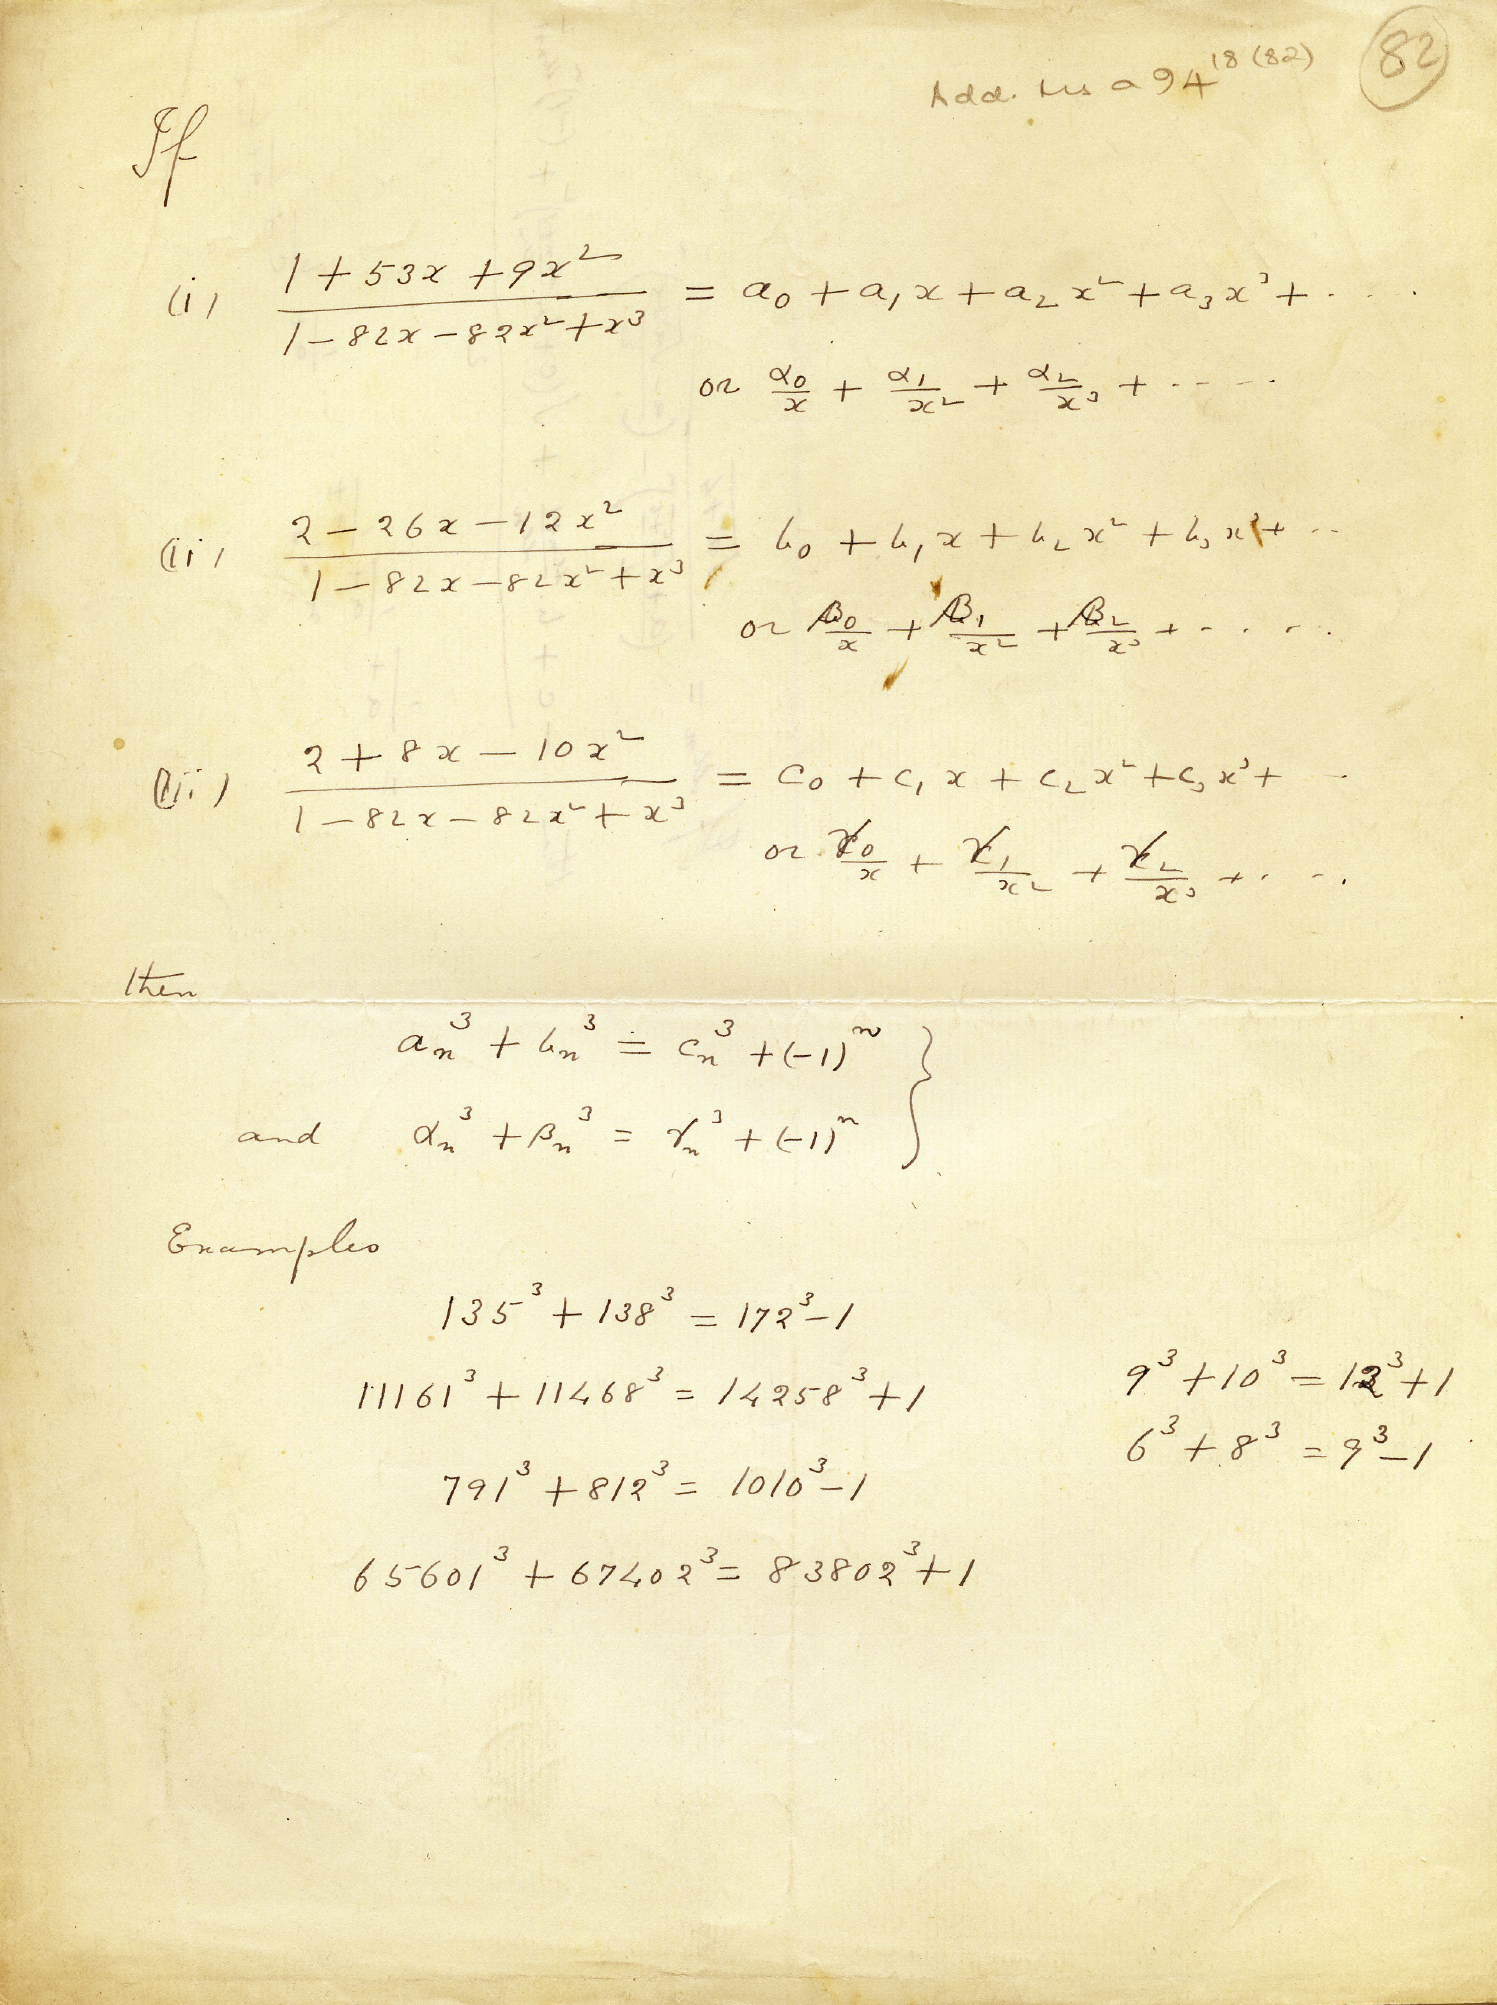 Add. Ms a 94¹⁸ ⁽⁸²⁾
82
If
(i) (1 + 53x + 9x²)/(1 − 82x − 82x² + x³) = a₀ + a₁x + a₂x² + a₃x³ + ....
or α₀/x + α₁/x² + α₂/x³ + .....
(ii) (2 − 26x − 12x²)/(1 − 82x − 82x² + x³) = b₀ + b₁x + b₂x² + b₃x³ + ...
or β₀/x + β₁/x² + β₂/x³ + .....
(iii) (2 + 8x − 10x²)/(1 − 82x − 82x² + x³) = c₀ + c₁x + c₂x² + c₃x³ + ..
or γ₀/x + γ₁/x² + γ₂/x³ + ....
then
aₙ³ + bₙ³ = cₙ³ + (−1)ⁿ }
and αₙ³ + βₙ³ = γₙ³ + (−1)ⁿ
Examples
135³ + 138³ = 172³ − 1
11161³ + 11468³ = 14258³ + 1
791³ + 812³ = 1010³ − 1
65601³ + 67402³ = 83802³ + 1
9³ + 10³ = 12³ + 1
6³ + 8³ = 9³ − 1